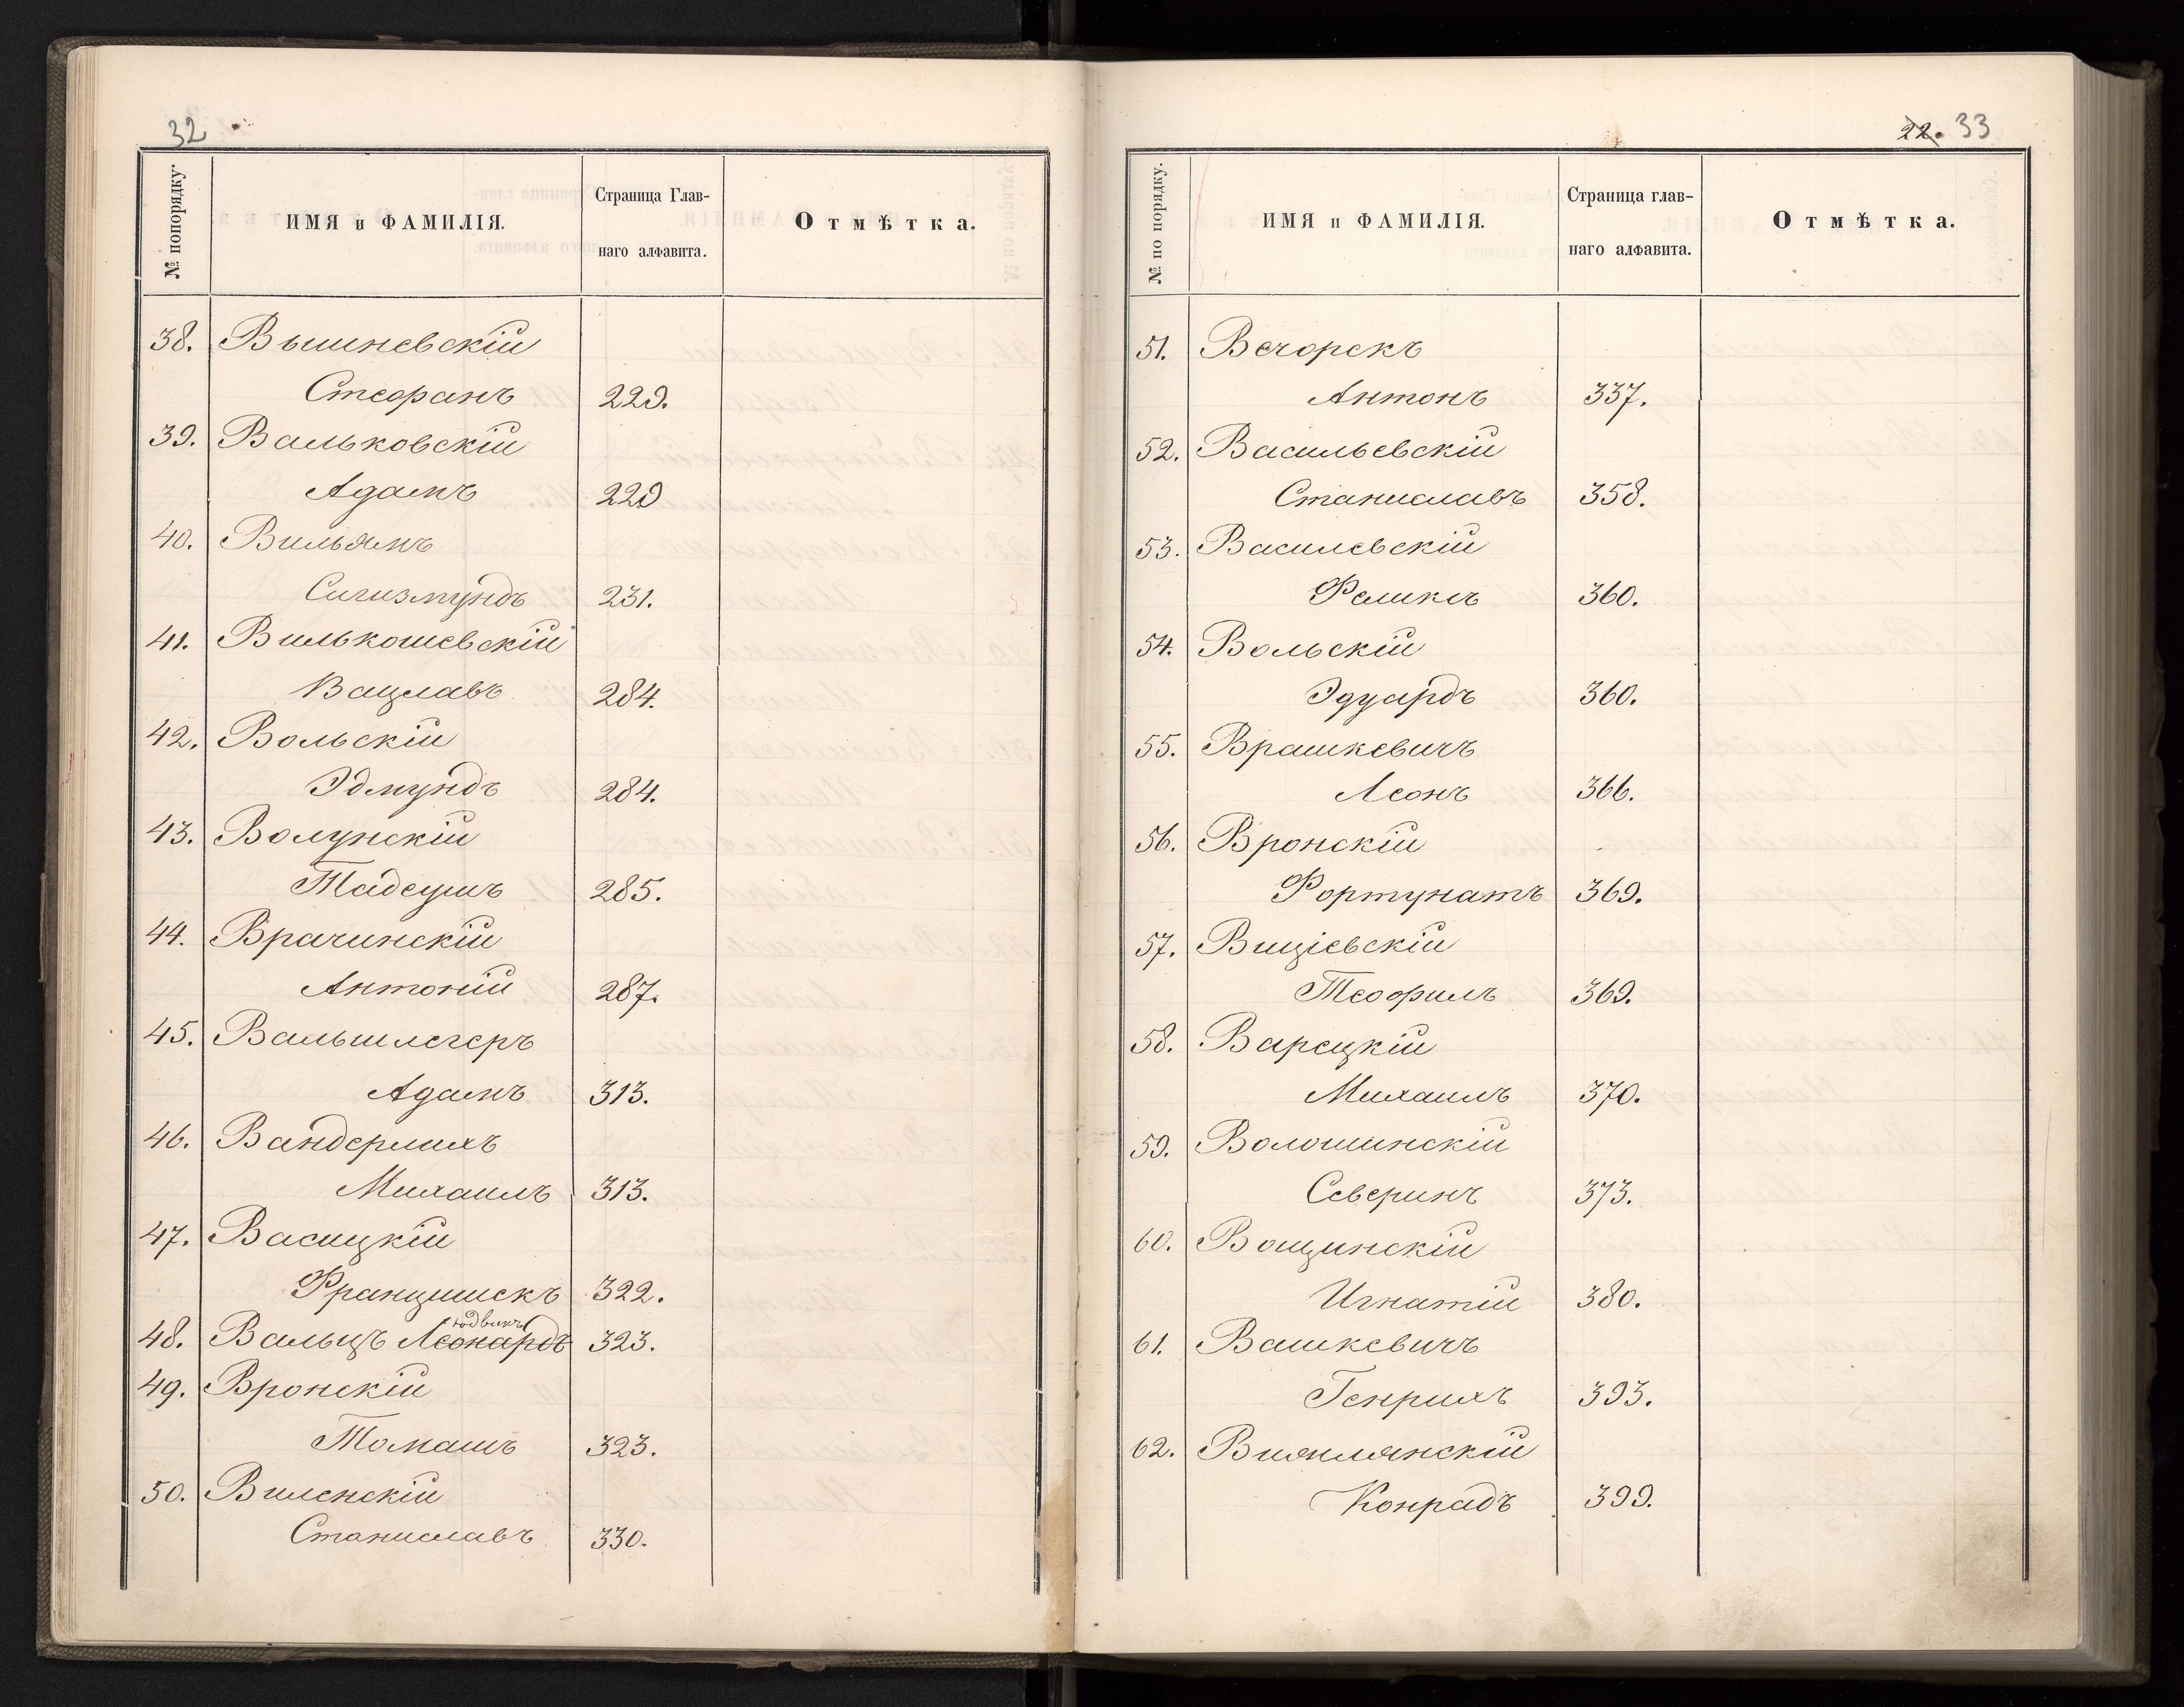 32
№ попорядку.
ИМЯ и ФАМИЛІЯ.
Страница Глав-
наго алфавита.
Отмѣтка.
38. Вышневскій
Стефанъ 229.
39. Вальковскій
Адамъ 229
40. Вильямъ
Сигизмундъ 231.
41. Вилькошевскій
Вацлавъ 284.
42. Вольскій
Эдмундъ 284.
43. Волунскій
Тадеушъ 285.
44. Врачинскій
Антоній 287.
45. Вальшлегеръ
Адамъ 313.
46. Вандерлихъ
Михаилъ 313.
47. Васицкій
Францишекъ 322.
юдвикъ
48. Вальцъ Леонардъ 323.
49. Вронскій
Томашъ 323.
50. Виленскій
Станиславъ 330.
22. 33
№ по порядку.
ИМЯ и ФАМИЛІЯ.
Страница глав-
наго алфавита.
Отмѣтка.
51. Вечорекъ
Антонъ 337.
52. Васильевскій
Станиславъ 358.
53. Василевскій
Феликсъ 360.
54. Вольскій
Эдуардъ 360.
55. Врашкевичъ
Леонъ 366.
56. Вронскій
Фортунатъ 369.
57. Вищіевскій
Теофилъ 369.
58. Варецкій
Михаилъ 370.
59. Волошинскій
Северинъ 373.
60. Вощинскій
Игнатій 380.
61. Вашкевичъ
Генрихъ 393.
62. Виямлянскій
Конрадъ 399.